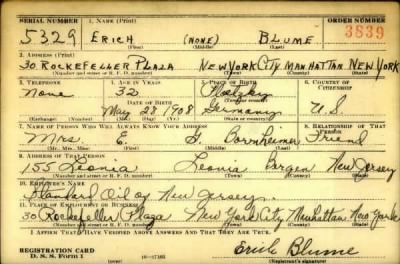 SERIAL NUMBER 1. NAME (Print) ORDER NUMBER
5329 ERICH (NONE) BLUME 3839
(First) (Middle) (Last)
2. ADDRESS (Print)
30 ROCKEFELLER PLAZA NEW YORK CITY MANHATTAN NEW YORK
(Number and street or R. F. D. number) (Town) (County) (State)
3. TELEPHONE 4. AGE IN YEARS 5. PLACE OF BIRTH 6. COUNTRY OF CITIZENSHIP
None 32
DATE OF BIRTH (Town or county)
May 28 1908 Germany U S
(Exchange) (Number) (Mo.) (Day) (Yr.) (State or country)
7. NAME OF PERSON WHO WILL ALWAYS KNOW YOUR ADDRESS 8. RELATIONSHIP OF THAT PERSON
Mrs E. Bornheimer Friend
(Mr., Mrs., Miss) (First) (Middle) (Last)
9. ADDRESS OF THAT PERSON
155 Leonia Leonia Bergen New Jersey
(Number and street or R. F. D. number) (Town) (County) (State)
10. EMPLOYER'S NAME
Standard Oil of New Jersey
11. PLACE OF EMPLOYMENT OR BUSINESS
30 Rockefeller Plaza New York City Manhattan New York
(Number and street or R. F. D. number) (Town) (County) (State)
I AFFIRM THAT I HAVE VERIFIED ABOVE ANSWERS AND THAT THEY ARE TRUE.
REGISTRATION CARD
D. S. S. Form 1 16—17105 Erich Blume
(Registrant's signature)